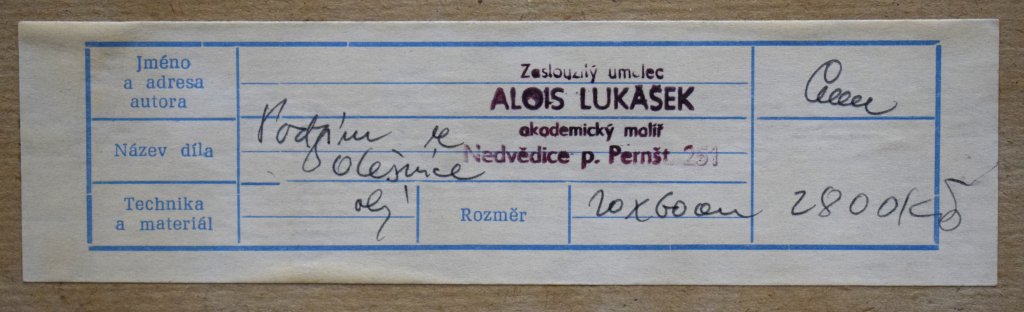 Jméno
a adresa
autora
Zasloužilý umělec
ALOIS LUKÁŠEK
akademický malíř
Nedvědice p. Pernšt. 251
Cena
Název díla
Podzim
Olešnice
Technika
a materiál
olej
Rozměr
20x60cm
2800Kč